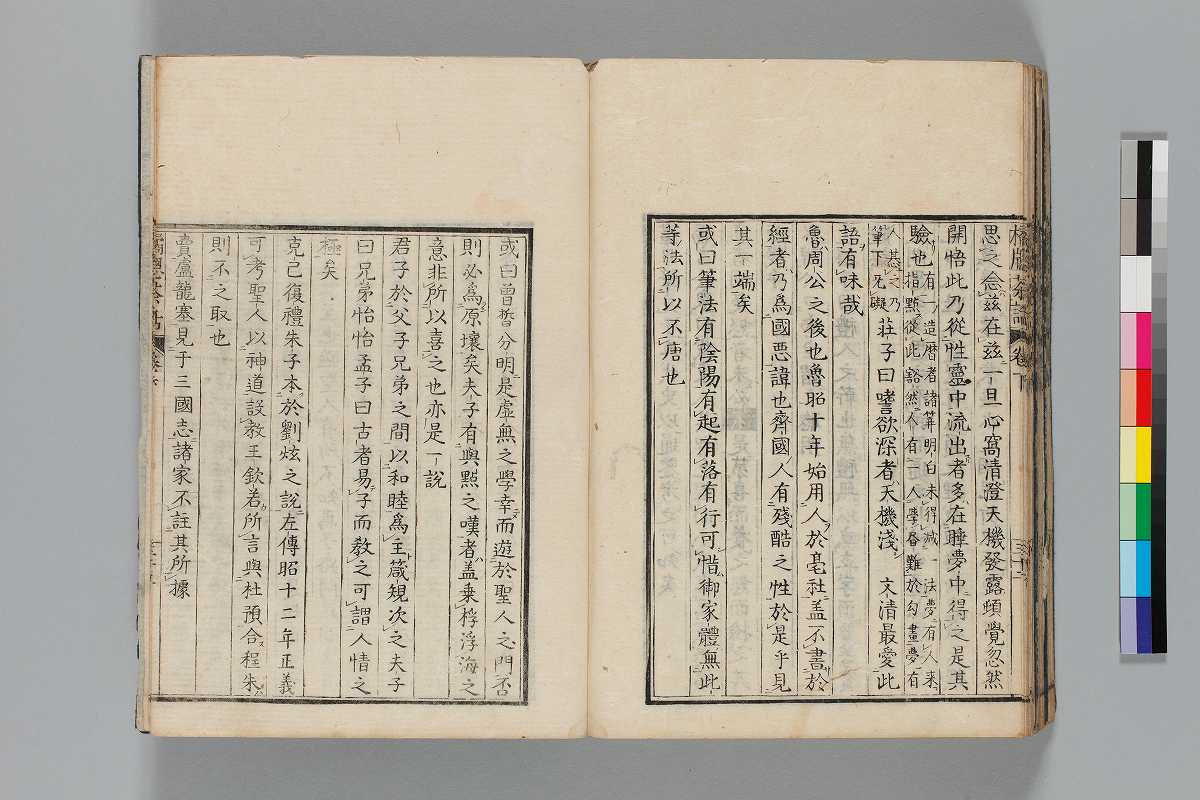 思之念茲在茲一旦心窩清澄天機發露頓覺忽然
開悟此乃從性靈中流出者多在睡夢中得之是其
驗也有一造曆者諸算明白未得減一法夢有人来
指點從此豁然又有一人學琴難於勾畫夢有
人惎之乃
筆下旡礙
莊子曰嗜欲深者天機淺 文清最愛此
語有味哉
魯周公之後也魯昭十年始用人於亳社盖不書於
經者乃為國惡諱也齊國人有殘酷之性於是乎見
其一端矣
或曰筆法有陰陽有起有落有行可惜御家體無此
等法所以不唐也
卷下
或曰曾晳分明是虛無之學幸而遊於聖人之門否
則必為原壤矣夫子有與點之嘆者盖乗桴浮海之
意非所以喜之也亦是一說
君子於父子兄弟之間以和睦為主箴䂓次之夫子
曰兄弟怡怡孟子曰古者易子而教之可謂人情之
極矣
克己復禮朱子本於劉炫之說左傳昭十二年正義
可考聖人以神道設教王欽若所言與杜預合程朱
則不之取也
賣盧龍塞見于三國志諸家不註其所據